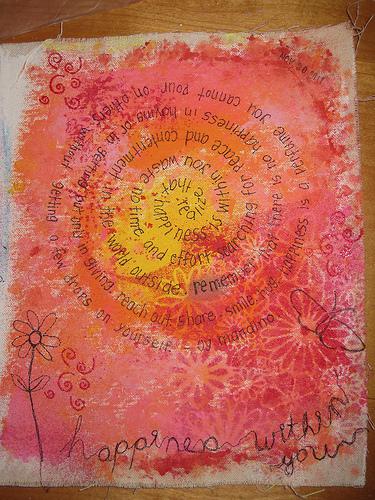 realize that happiness is within you waste no time and effort searching for peace and contentment in the world outside. remember that there is no happiness in having or in getting but only in giving reach out. share. smile. hug. happiness is a perfume you cannot pour on others without getting a few drops on yourself. - og mandino
happiness within
you